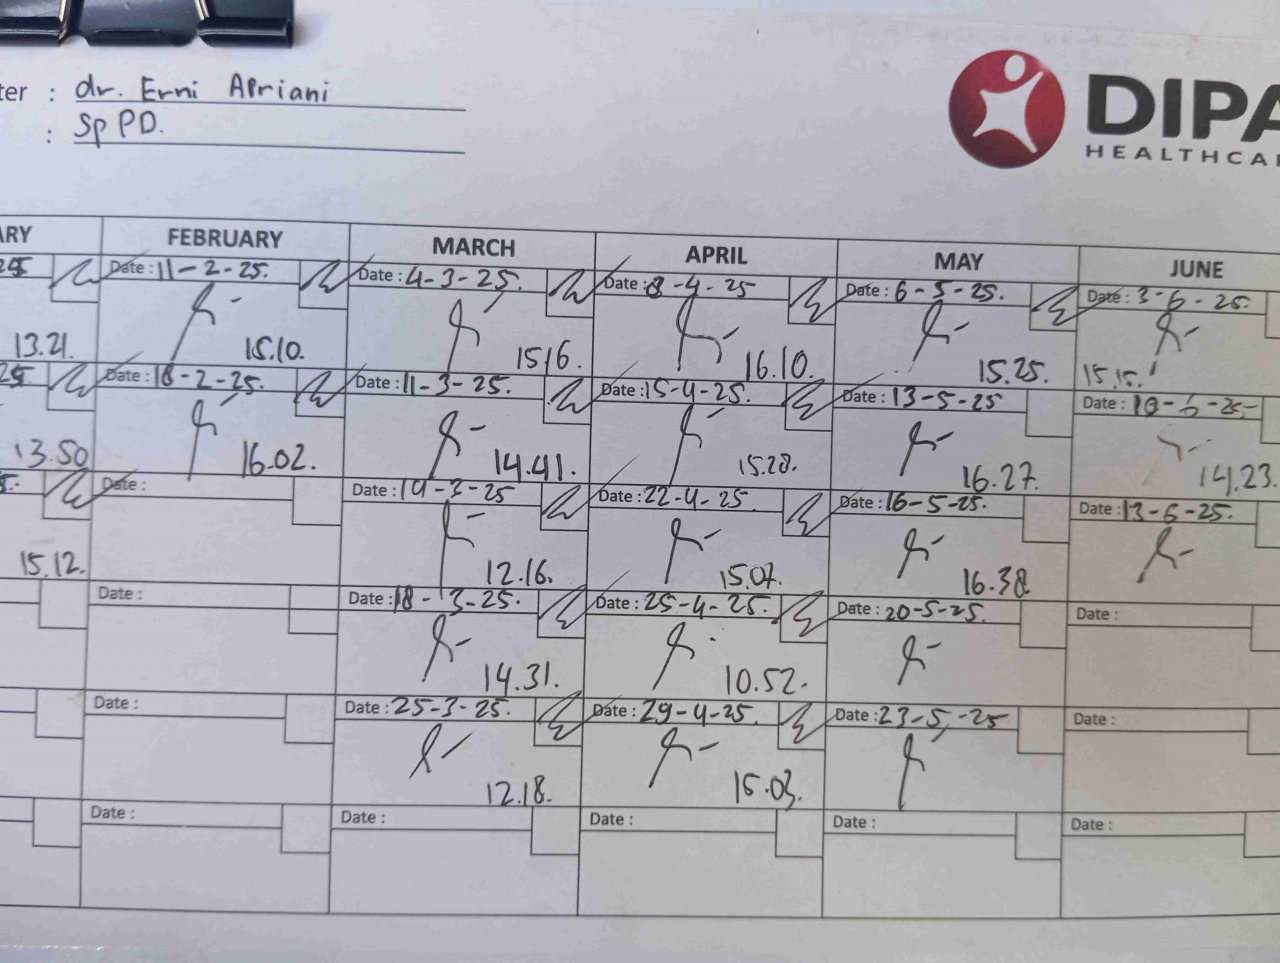 ter : dr. Erni Apriani
: Sp PD.
DIPA
HEALTHCAR
ARY FEBRUARY MARCH APRIL MAY JUNE
25 Date : 11-2-25. Date : 4-3-25. Date : 8-4-25 Date : 6-5-25. Date : 3-6-25.
13.21. 15.10. 15.16. 16.10. 15.25. 15.15.
25. Date : 18-2-25. Date : 11-3-25. Date : 15-4-25. Date : 13-5-25 Date : 10-6-25
13.50 16.02. 14.41. 15.28. 16.27. 14.23.
Date : Date : 14-3-25 Date : 22-4-25. Date : 16-5-25. Date : 13-6-25.
15.12. 12.16. 15.07. 16.38
Date : Date : 18-3-25. Date : 25-4-25. Date : 20-5-25. Date :
14.31. 10.52.
Date : Date : 25-3-25. Date : 29-4-25. Date : 23-5-25 Date :
12.18. 15.03.
Date : Date : Date : Date : Date :